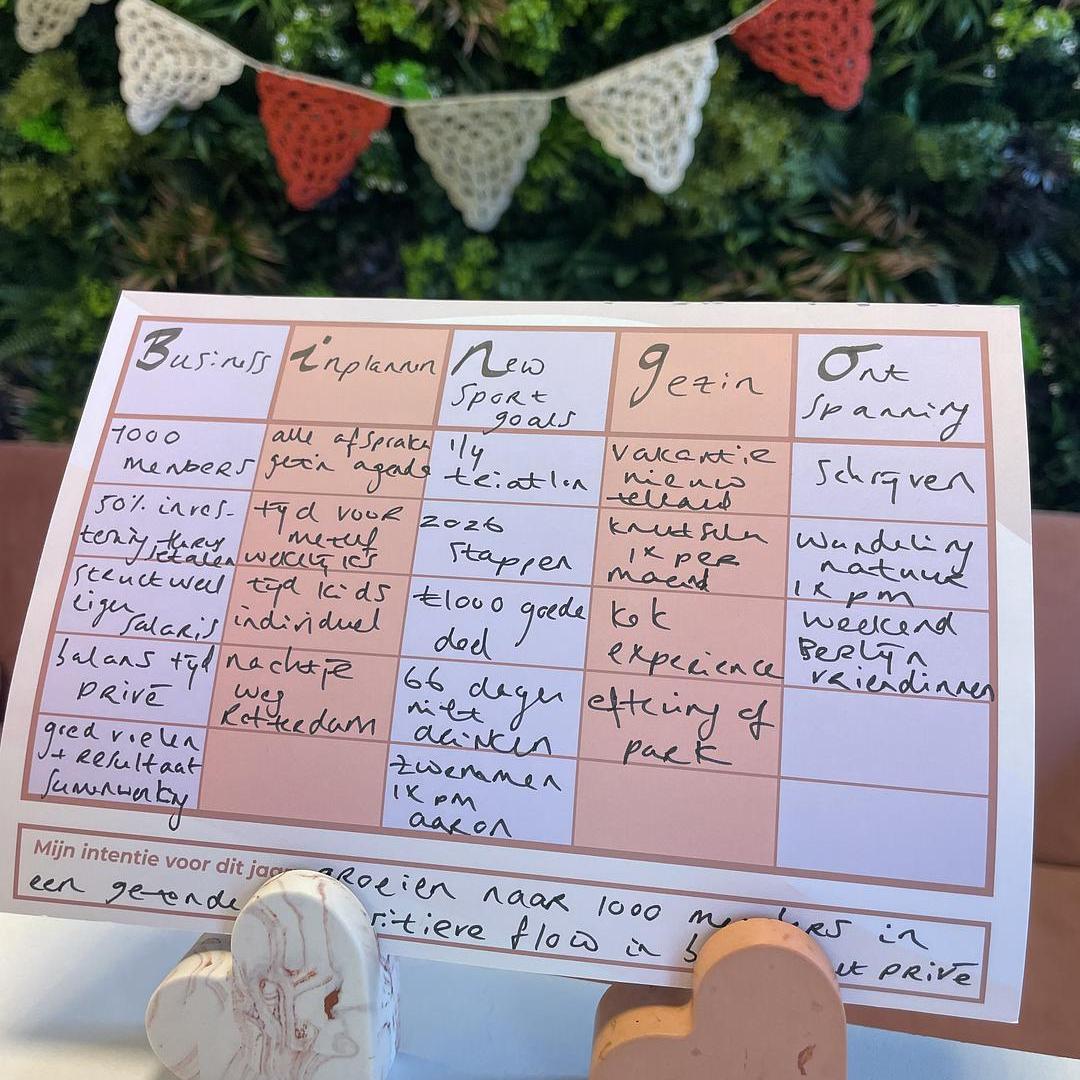 Business
inplannen
New
sport
goals
gezin
Ont
spanning
1000
members
alle afspraken
gezin agenda
1/4
triatlon
vakantie
nieuw
zeeland
schrijven
50% inves-
tering terug
betalen
tijd voor
mezelf
wekelijks
2026
stappen
knutselen
1x per
maand
wandeling
natuur
1x pm
structureel
eigen
salaris
tijd kids
individueel
€1000 goede
doel
kok
experience
weekend
Berlijn
vriendinnen
balans tijd
privé
nachtje
weg
Rotterdam
66 dagen
niet
drinken
efteling of
park
goed voelen
+ resultaat
samenwerking
zwemmen
1x pm
aaron
Mijn intentie voor dit
groeien naar 1000 members in
een gezonde flow in privé